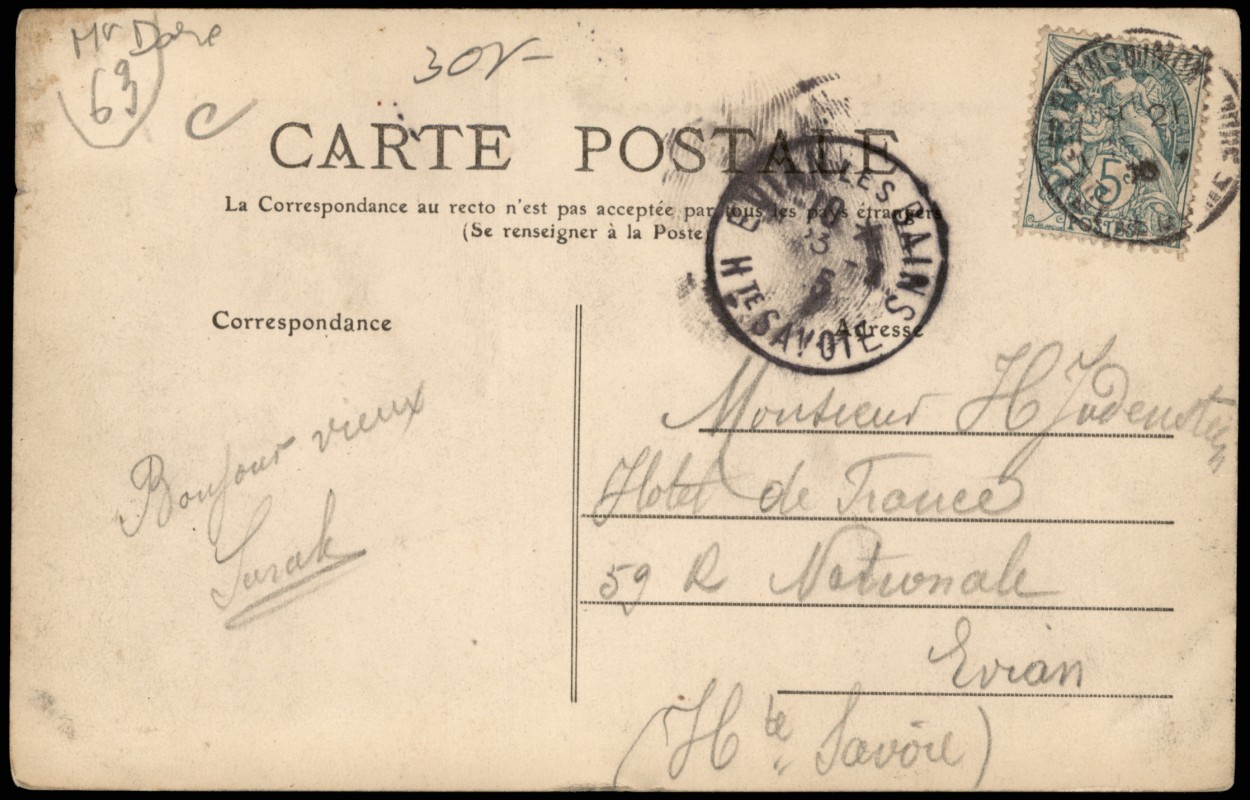 Mr Dore
63
C
30f-
CARTE POSTALE
La Correspondance au recto n'est pas acceptée par tous les pays étrangers
(Se renseigner à la Poste)
EVIAN LES BAINS
Hte SAVOIE
5
POSTES
Correspondance
Adresse
Bonjour vieux
Sarak
Monsieur H
Hotel de France
59 R Nationale
Evian
(Hte Savoie)